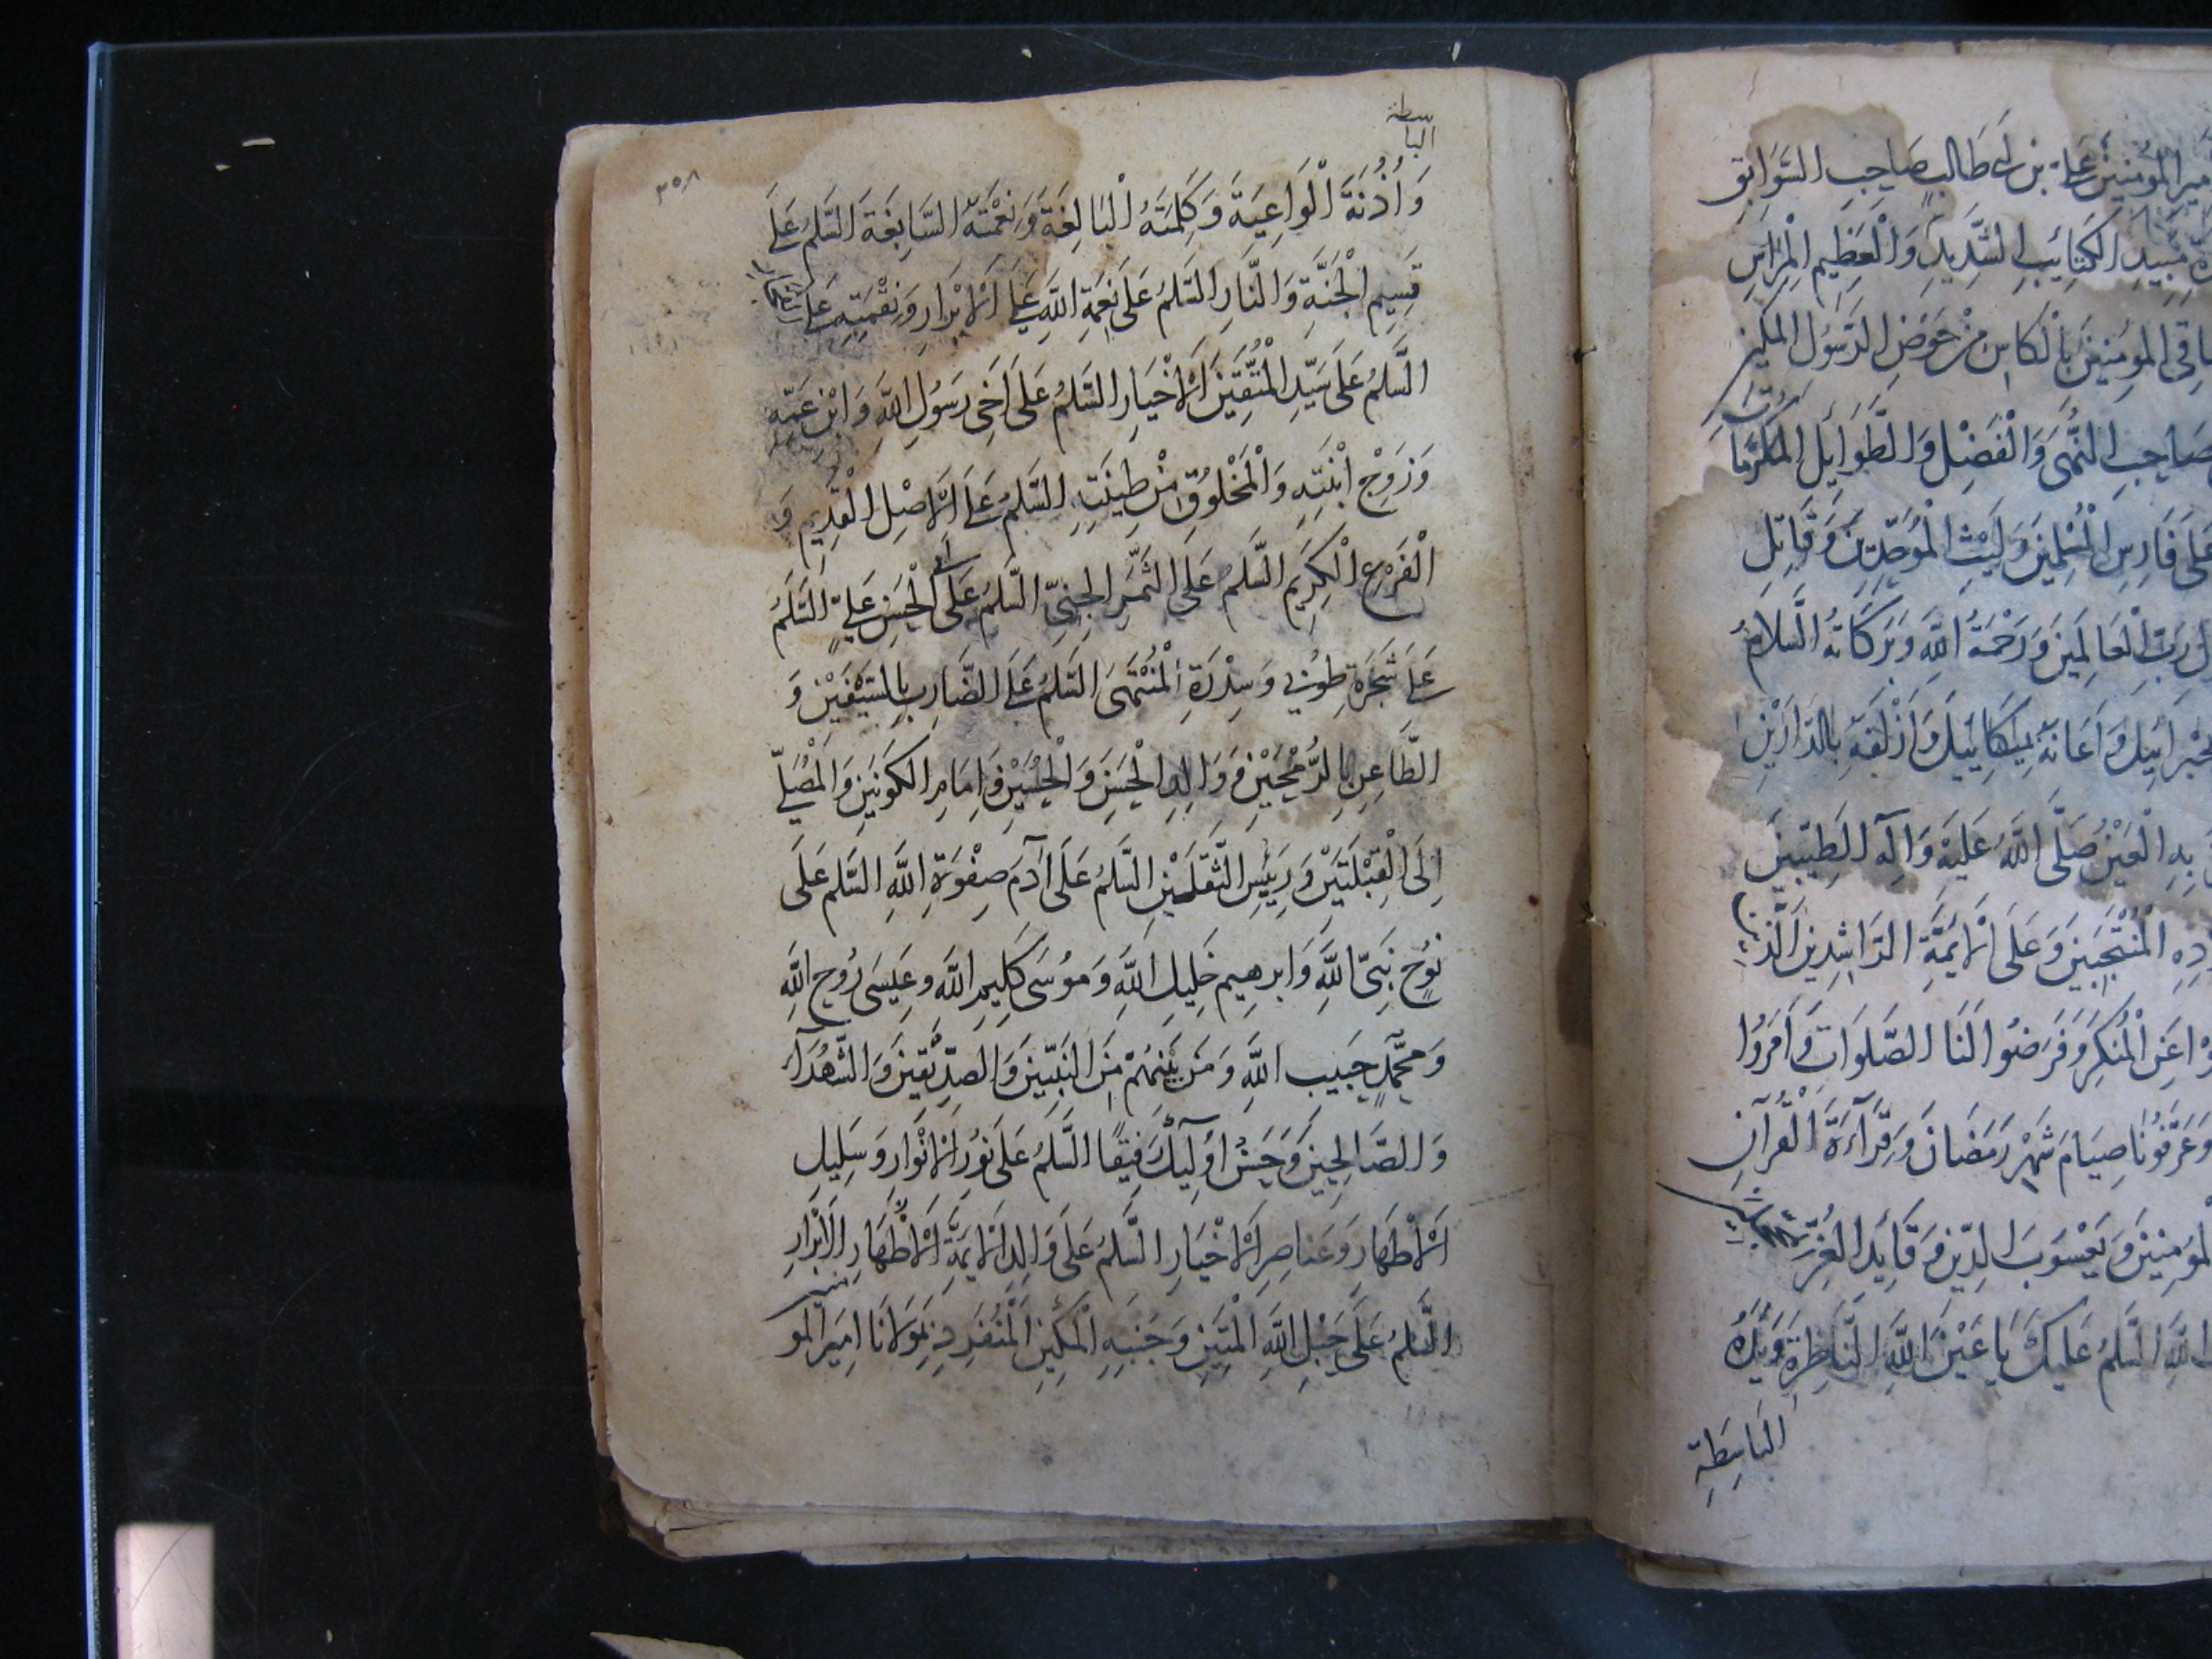 ميرالمؤمنين علي بن ابي طالب صاحب السوابق
مبيد الكتايب الشديد والعظيم المراس
اقى المومنين بالكاس من حوض الرسول المكين
صاحب النهى والفضل والطوايل المكرمات
على فارس المسلمين وليث الموحدين وقاتل
رب العالمين ورحمة الله وبركاته السلام
جبرائيل واعانه بميكائيل وازلفه بالدارين
به العين صلى الله عليه وآله الطيبين
المنتجبين وعلى الايمة الراشدين الذين
عن المنكر وفرضوا لنا الصلوات وامروا
وعرفونا صيام شهر رمضان وقرآءة القرآن
المومنين ويعسوب الدين وقايد الغر المحجلين
الله السلم عليك يا عين الله الناظرة ويده
الباسطة
الباسطة
٣٥٨
واذنه الواعية وكلمته البالغة ونعمته السابغة السلم على
قسيم الجنة والنار السلم على نعمة الله على الابرار ونقمته على الكفار
السلم على سيد المتقين الاخيار السلم على اخى رسول الله وابن عمه
وزوج ابنته والمخلوق من طينته السلم على الاصل القديم و
الفرع الكريم السلم على الثمر الجني السلم على ابى الحسن علي السلم
على شجرة طوبى وسدرة المنتهى السلم على الضارب بالسيفين و
الطاعن بالرمحين ووالد الحسن والحسين وامام الكونين والمصلي
الى القبلتين ورئيس الثقلين السلم على آدم صفوة الله السلم على
نوح نبي الله وابرهيم خليل الله وموسى كليم الله وعيسى روح الله
ومحمد حبيب الله ومن بينهم من النبيين والصديقين والشهدآء
والصالحين وحسن اوليك رفيقا السلم على نور الانوار وسليل
الاطهار وعناصر الاخيار السلم على والد الايمة الاطهار الابرار
السلم على حبل الله المتين وجنبه المكين المنفرد مولانا امير المومنين